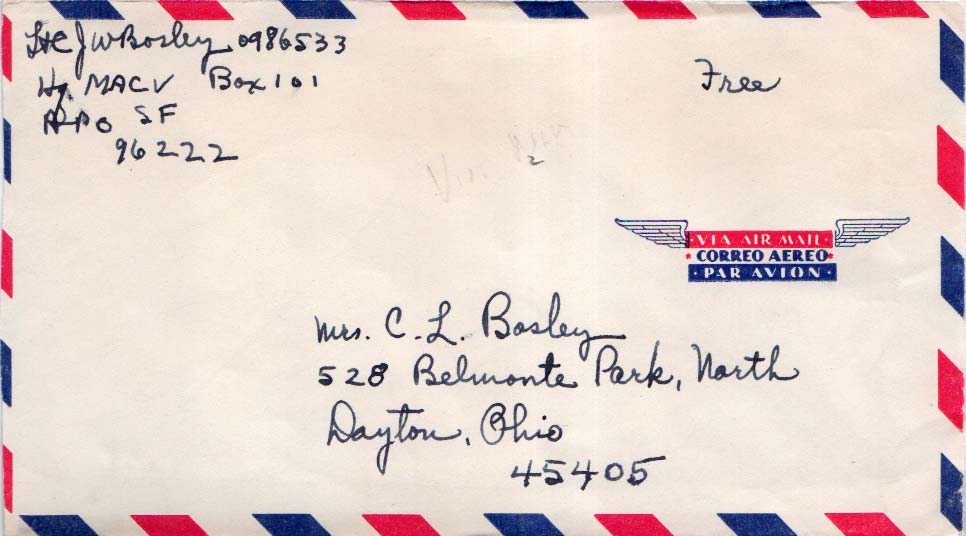 LtC JW Bosley 0986533
Hq MACV Box 101
APO SF
96222
Free
2
VIA AIR MAIL
CORREO AEREO
PAR AVION
Mrs. C. L. Bosley
528 Belmonte Park, North
Dayton, Ohio
45405